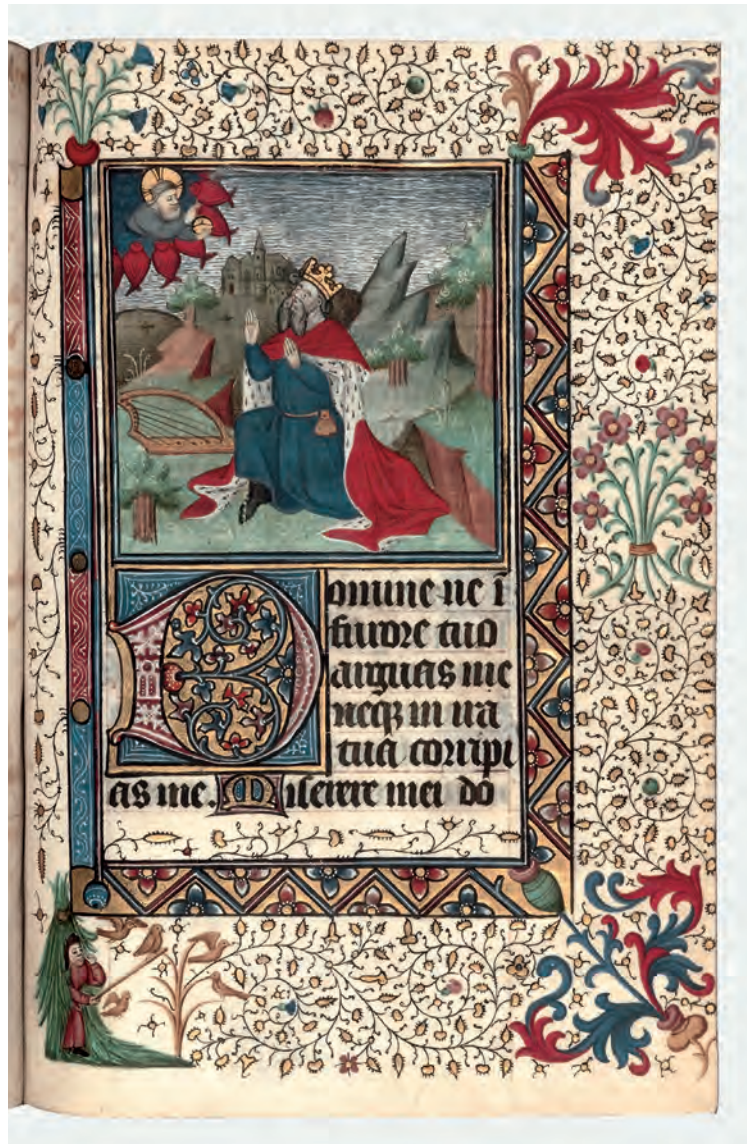 Domine ne ī
furore tuo
arguas me
neqꝫ in ira
tua corripi
as me. Miserere mei do